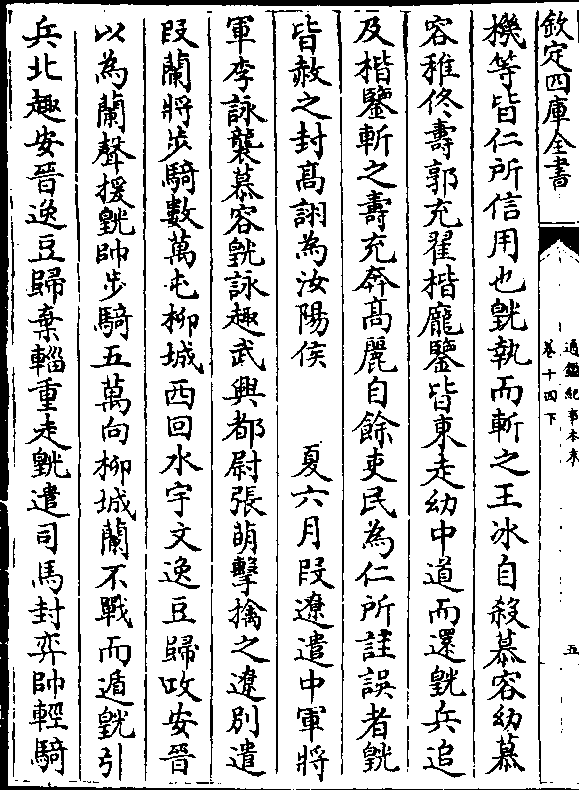 欽定四庫全書
通鑑紀事本末
卷十四下
五
機等皆仁所信用也皝執而斬之王冰自殺慕容幼慕
容稚佟壽郭充翟楷龐鑒皆東走幼中道而還皝兵追
及楷鑒斬之壽充奔髙麗自餘吏民為仁所詿誤者皝
皆赦之封髙詡為汝陽侯　夏六月段遼遣中軍將
軍李詠襲慕容皝詠趣武興都尉張萌擊擒之遼别遣
段蘭將步騎數萬屯柳城西回水宇文逸豆歸攻安晉
以為蘭聲援皝帥步騎五萬向柳城蘭不戰而遁皝引
兵北趣安晉逸豆歸棄輜重走皝遣司馬封弈帥輕騎